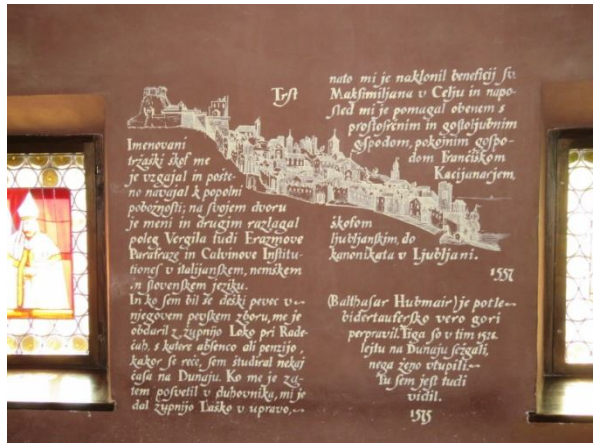 Trst
Imenovani
tržaški škof me
je vzgajal in pošte-
no navajal k popolni
pobožnosti; na svojem dvoru
je meni in drugim razlagal
poleg Vergila tudi Erazmove
Parafraze in Calvinove Institu-
tiones v italijanskem, nemškem
in slovenskem jeziku.
In ko sem bil že deški pevec v
njegovem pevskem zboru, me je
obdaril z župnijo Loko pri Rade-
čah, s katere absenco ali penzijo,
kakor se reče, sem študiral nekaj
časa na Dunaju. Ko me je za-
tem posvetil v duhovnika, mi je
dal župnijo Laško v upravo,
nato mi je naklonil beneficij sv.
Maksimiljana v Celju in napo-
sled mi je pomagal obenem s
prostosrčnim in gostoljubnim
gospodom, pokojnim gospo-
dom Frančiškom
Kacijanarjem,
škofom
ljubljanskim, do
kanonikata v Ljubljani.
1557
(Balthasar Hubmair) je potle
bidertaufersko vero gori
perpravil. Tiga so v tim 1528.
lejtu na Dunaju sežgali,
nega ženo vtupili
Tu sem jest tudi
vidil.
1575